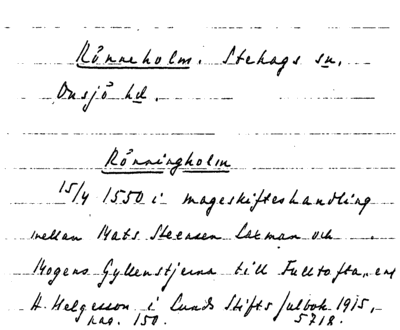 Rönneholm. Stehags sn.
Onsjö hd.
Rönningholm
15/4 1550 i mageskifteshandling
mellan Mats Steensen Laxman och
Mogens Gyllenstjerna till Fulltofta, enl
H. Helgesson i Lunds Stifts julbok 1915,
pag. 150. 5718.